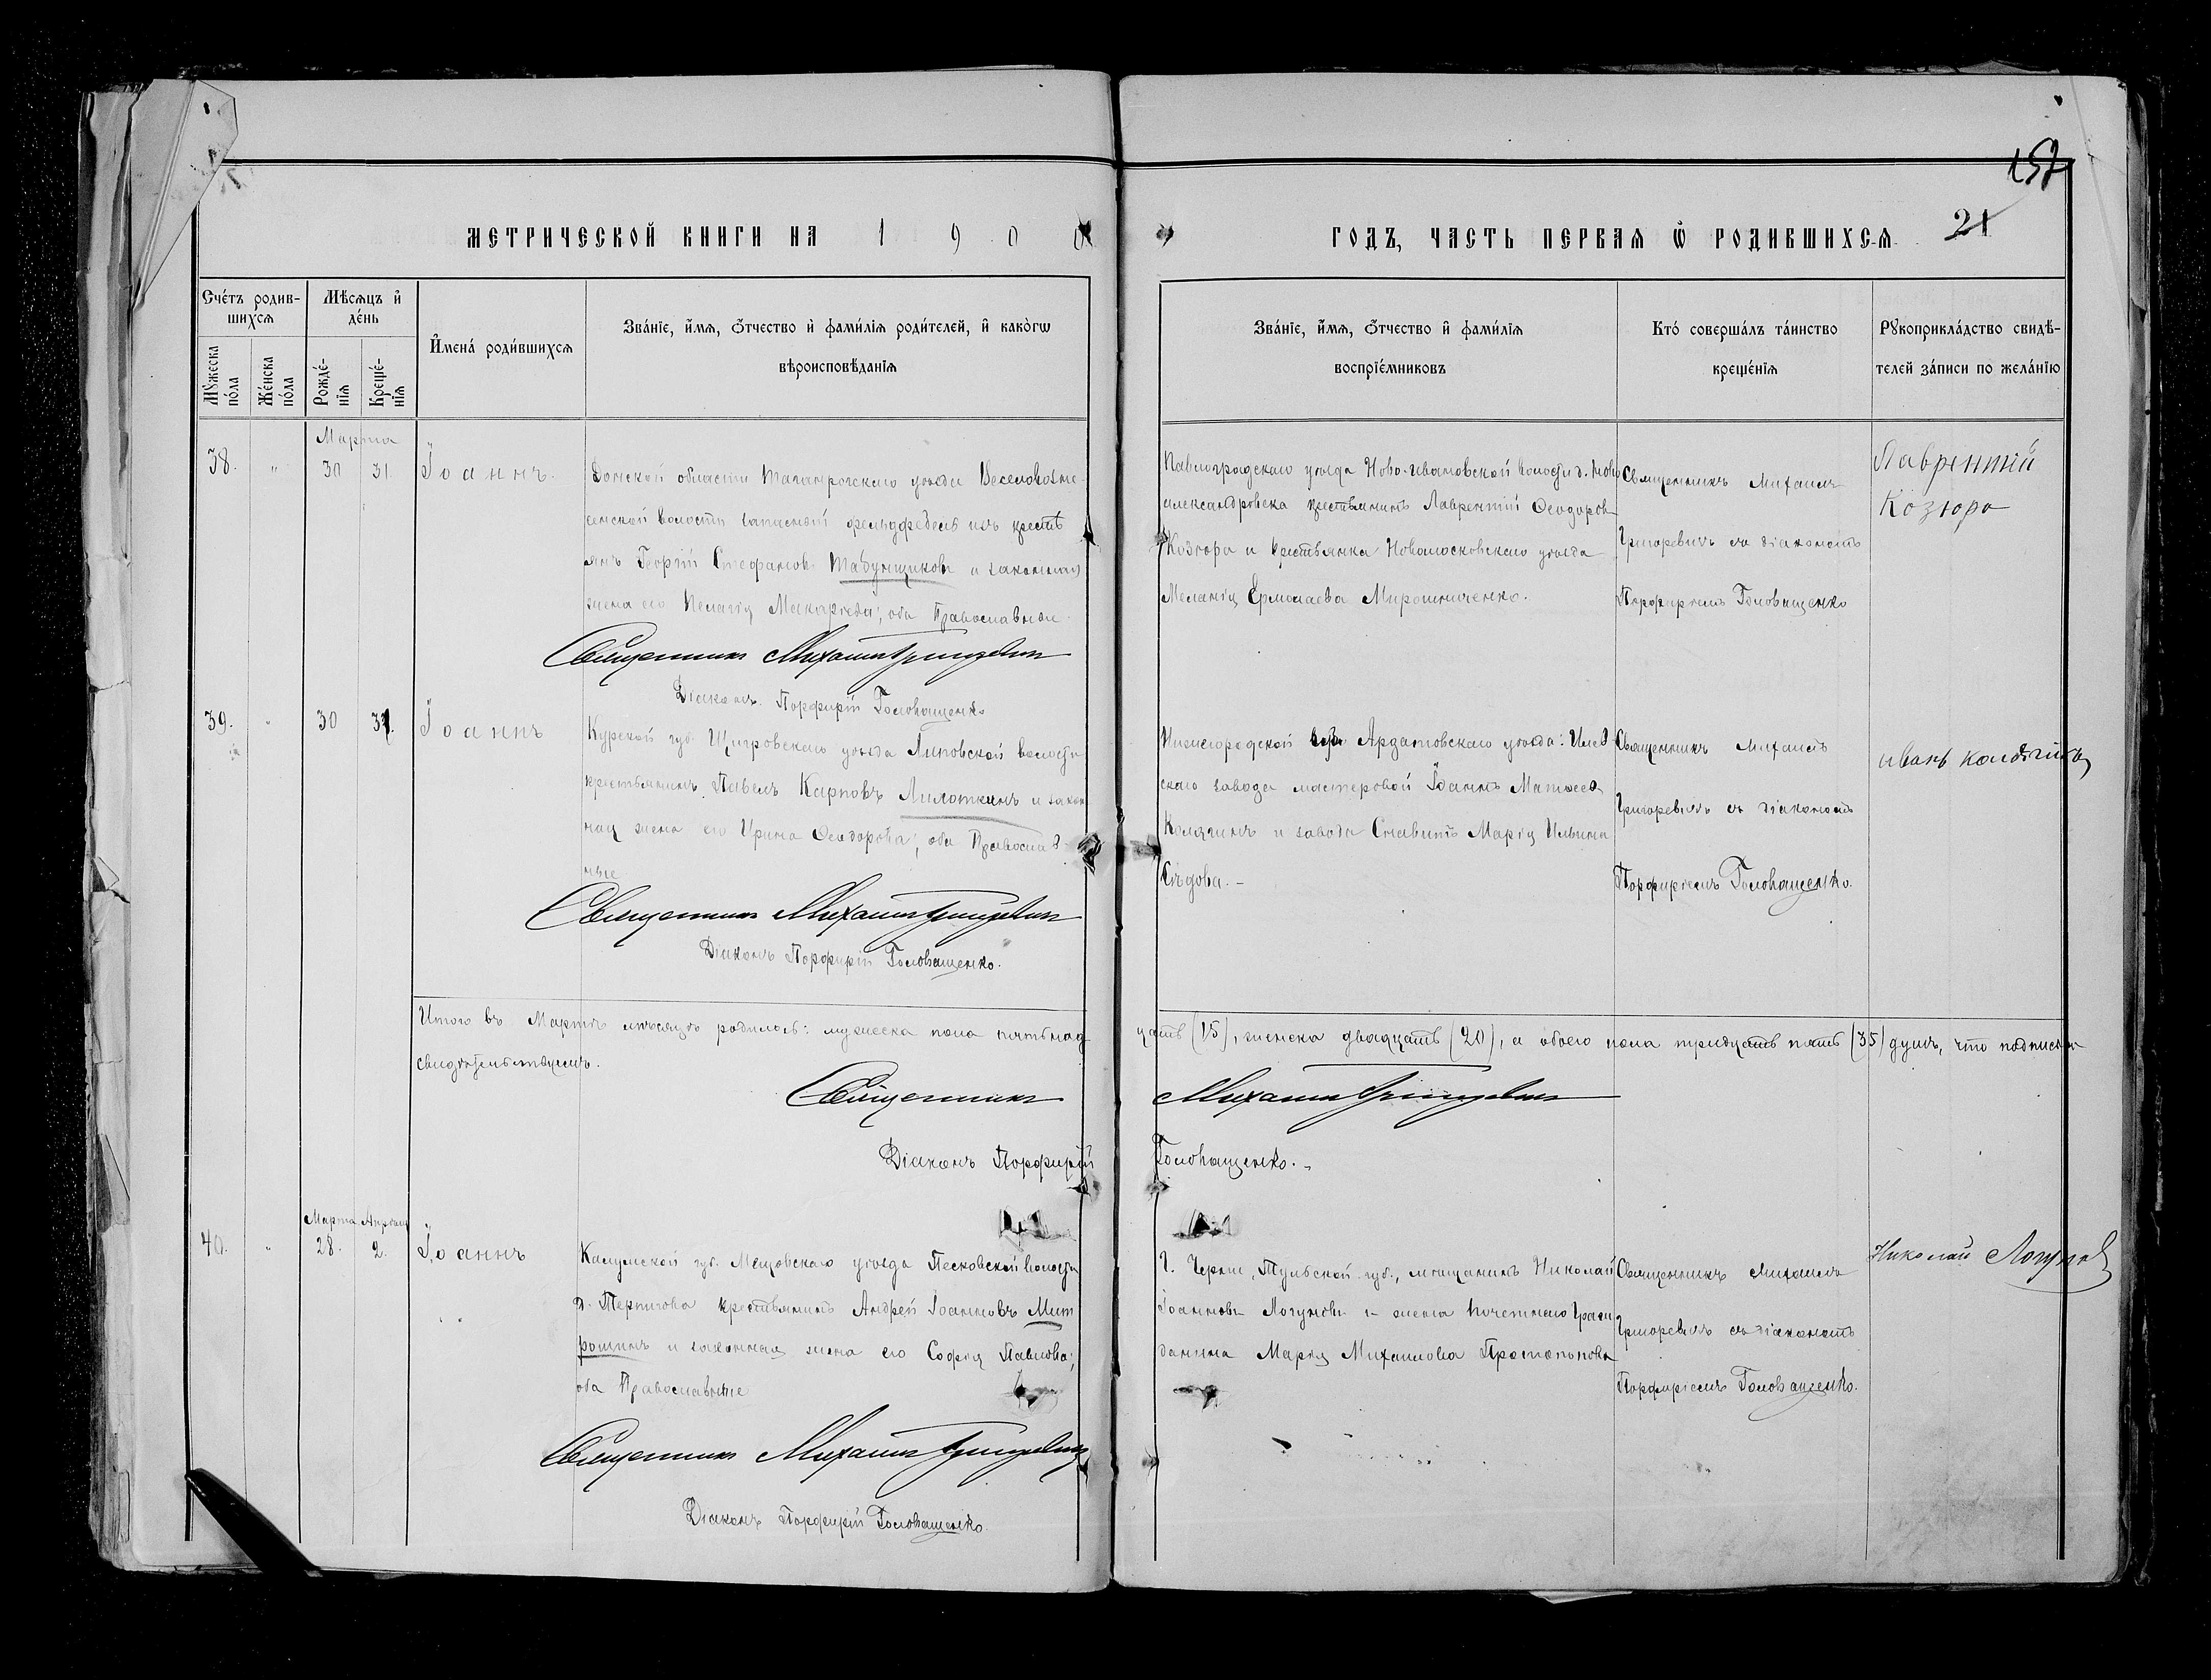 157
21
МЕТРИЧЕСКОЙ КНИГИ НА 1900
ГОДЪ, ЧАСТЬ ПЕРВАЯ Ѡ РОДИВШИХСЯ
Сче́тъ родившихся
Мѣсяцъ и де́нь
Мꙋжеска по́ла
Же́нска по́ла
Рожде́нія
Креще́нія
И҆мена́ роди́вшихся
Зва́ніе, и҆́мя, ѻ҆́тчество и҆ фами́лія роди́телей, и҆ како́гѡ
вѣроисповѣ́данія
Зва́ніе, и҆́мя, ѻ҆́тчество и҆ фами́лія
воспріе́мниковъ
Кто́ соверша́лъ та́инство
креще́нія
Рꙋкоприкла́дство свидѣ́-
телей за́писи по жела́нію
Марта
38. " 30 31. Іоаннъ.
Донской области Таганрогскаго уѣзда Веселовозне-
сенской волости запасный фельдфебель изъ кресть
янъ Георгій Стефановъ Табунщиковъ и законная
жена его Пелагія Макарьева; оба Православные.
Священникъ Михаилъ Григоревичъ
Діаконъ Порфирій Головащенко
Павлоградскаго уѣзда Ново-Ивановской волости д. Ново
александровка крестьянинъ Лаврентій Ѳеодоровъ
Козюра и крестьянка Новомосковскаго уѣзда
Меланія Ермолаева Мирошниченко.
Священникъ Михаилъ
Григоревичъ съ діакономъ
Порфиріемъ Головащенко
Лаврентій
Козюра
39. " 30 31. Іоаннъ
Курской губ. Щигровскаго уѣзда Липовской волости
крестьянинъ Павелъ Карповъ Лилоткинъ и закон
ная жена его Ирина Ѳеодорова; оба Православ-
ные
Священникъ Михаилъ Григоревичъ
Діаконъ Порфирій Головащенко.
Нижегородской губ. Ардатовскаго уѣзда: Илев
скаго завода мастеровой Іоаннъ Матѳеевъ
Колягинъ и завода Ставитъ Марія Ильина
Сѣдова. –
Священникъ Михаилъ
Григоревичъ съ діакономъ
Порфиріемъ Головащенко.
иванъ Колягинъ
Итого въ Мартѣ мѣсяцѣ родилось: мужеска пола пятьнад
цать (15), женска двадцать (20), а обоего пола тридцать пять (35) душъ, что подписомъ
свидѣтельствуемъ.
Священникъ Михаилъ Григоревичъ
Діаконъ Порфирій Головащенко. –
Марта Апрѣля
40. " 28. 2. Іоаннъ
Калужской губ. Мещовскаго уѣзда Песковской волости
д. крестьянинъ Андрей Іоанновъ Мит
рошинъ и законная жена его Софія Павлова;
оба Православные
Священникъ Михаилъ Григоревичъ
Діаконъ Порфирій Головащенко.
Г. Черни, Тульской губ., мѣщанинъ Николай
Іоанновъ Логуновъ и жена почетнаго граж
данина Марія Михаилова Протопопова
Священникъ Михаилъ
Григоревичъ съ діакономъ
Порфиріемъ Головащенко.
Николай Логуновъ